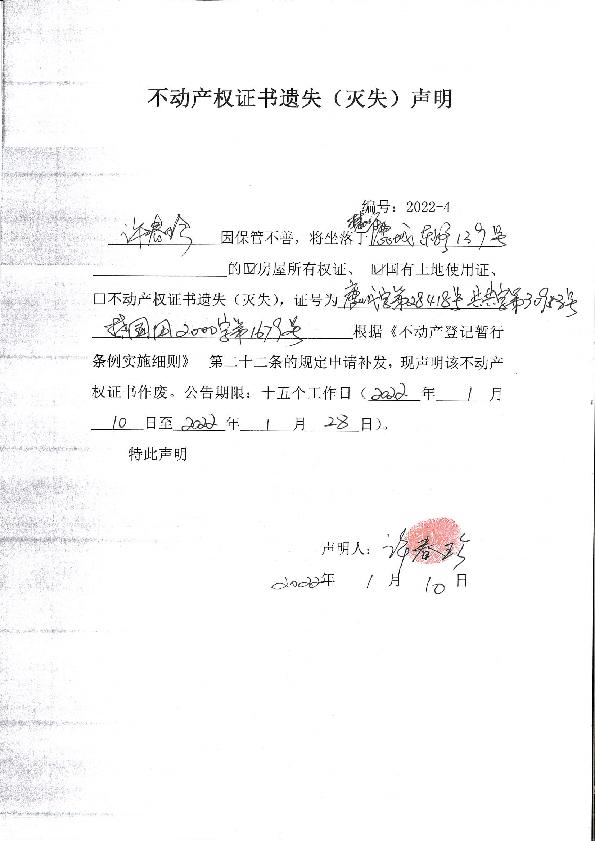 不动产权证书遗失（灭失）声明
编号：2022-4
许春珍 因保管不善，将坐落于 城东路139号
的☑房屋所有权证、☑国有土地使用证、
□不动产权证书遗失（灭失），证号为 字第28418号 共字第 号
国用2000字第1679号 根据《不动产登记暂行
条例实施细则》 第二十二条的规定申请补发，现声明该不动产
权证书作废。公告期限：十五个工作日（2022 年 1 月
10 日至 2022 年 1 月 28 日）。
特此声明
声明人：许春珍
2022年 1 月 10 日